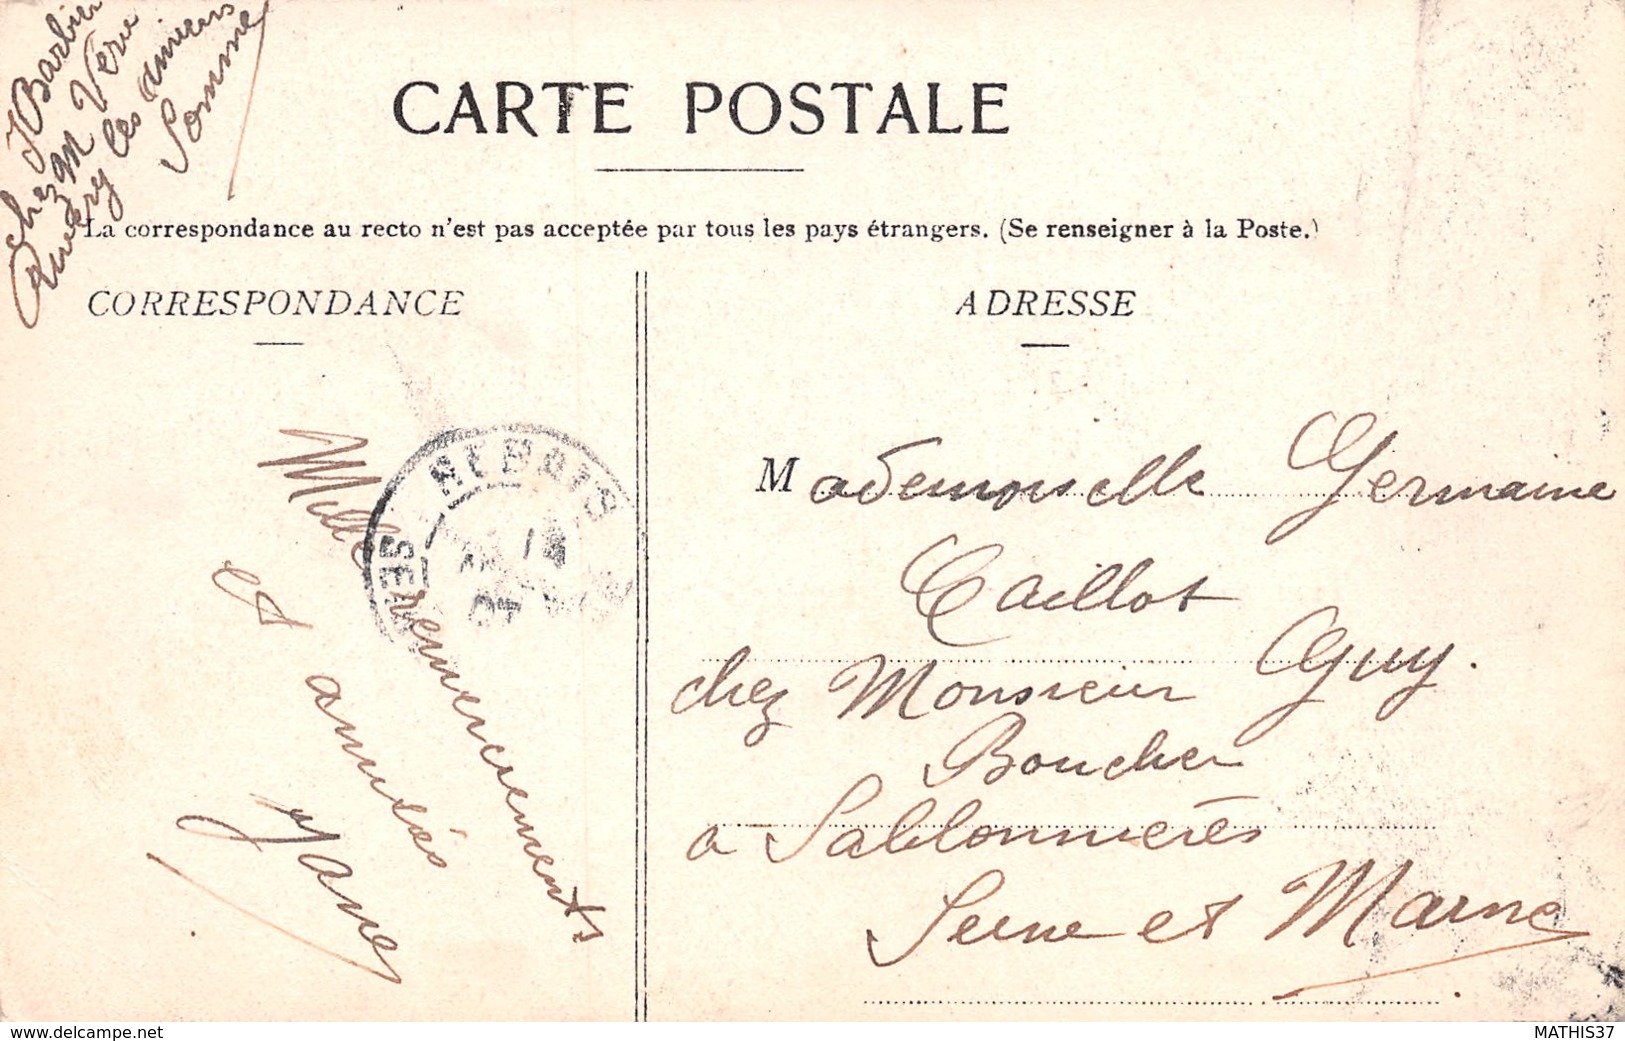 J Barbier
chez M Verie
Rivery les amiens
Somme
CARTE POSTALE
La correspondance au recto n'est pas acceptée par tous les pays étrangers. (Se renseigner à la Poste.)
CORRESPONDANCE
ADRESSE
Mille remerciements
et amitiés
Jane
Mademoiselle Germaine
Taillot
chez Monsieur Guy.
Boucher
a Sablonnières
Seine et Marne
www.delcampe.net
MATHIS37